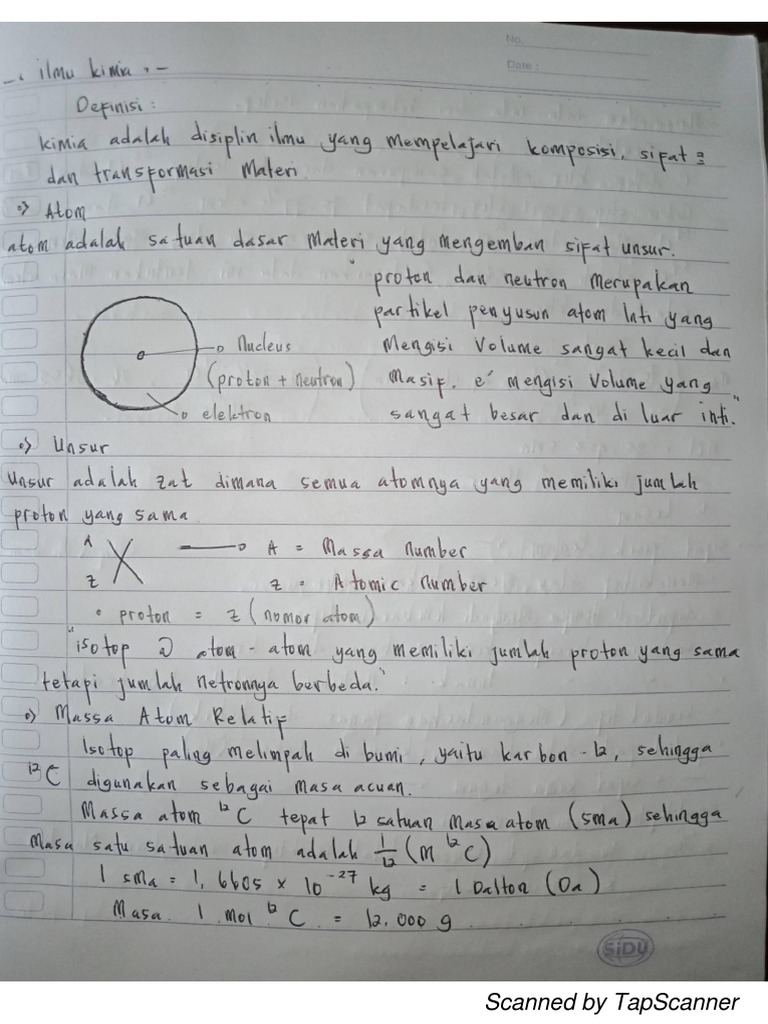 No.
Date :
-. ilmu kimia .-
Definisi :
kimia adalah disiplin ilmu yang mempelajari komposisi, sifat =
dan transformasi Materi
=> Atom
atom adalah satuan dasar Materi yang mengemban sifat unsur.
"proton dan neutron Merupakan
partikel penyusun atom Inti yang
Nucleus
Mengisi Volume sangat kecil dan
(proton + neutron)
Masif. e⁻ mengisi Volume yang
elektron
sangat besar dan di luar inti."
=> Unsur
Unsur adalah zat dimana semua atomnya yang memiliki jumlah
proton yang sama
A
X → A = Massa Number
Z
Z = Atomic Number
• proton = Z (nomor atom)
"isotop atom - atom yang memiliki jumlah proton yang sama
tetapi jumlah netronnya berbeda."
=> Massa Atom Relatif
Isotop paling melimpah di bumi, yaitu karbon - 12, sehingga
¹²C digunakan sebagai masa acuan.
Massa atom ¹²C tepat 12 satuan Masa atom (sma) sehingga
Masa satu satuan atom adalah 1/12 (m ¹²C)
1 sma = 1,6605 × 10⁻²⁷ kg = 1 Dalton (Da)
Masa 1 mol ¹²C = 12.000 g
SiDU
Scanned by TapScanner